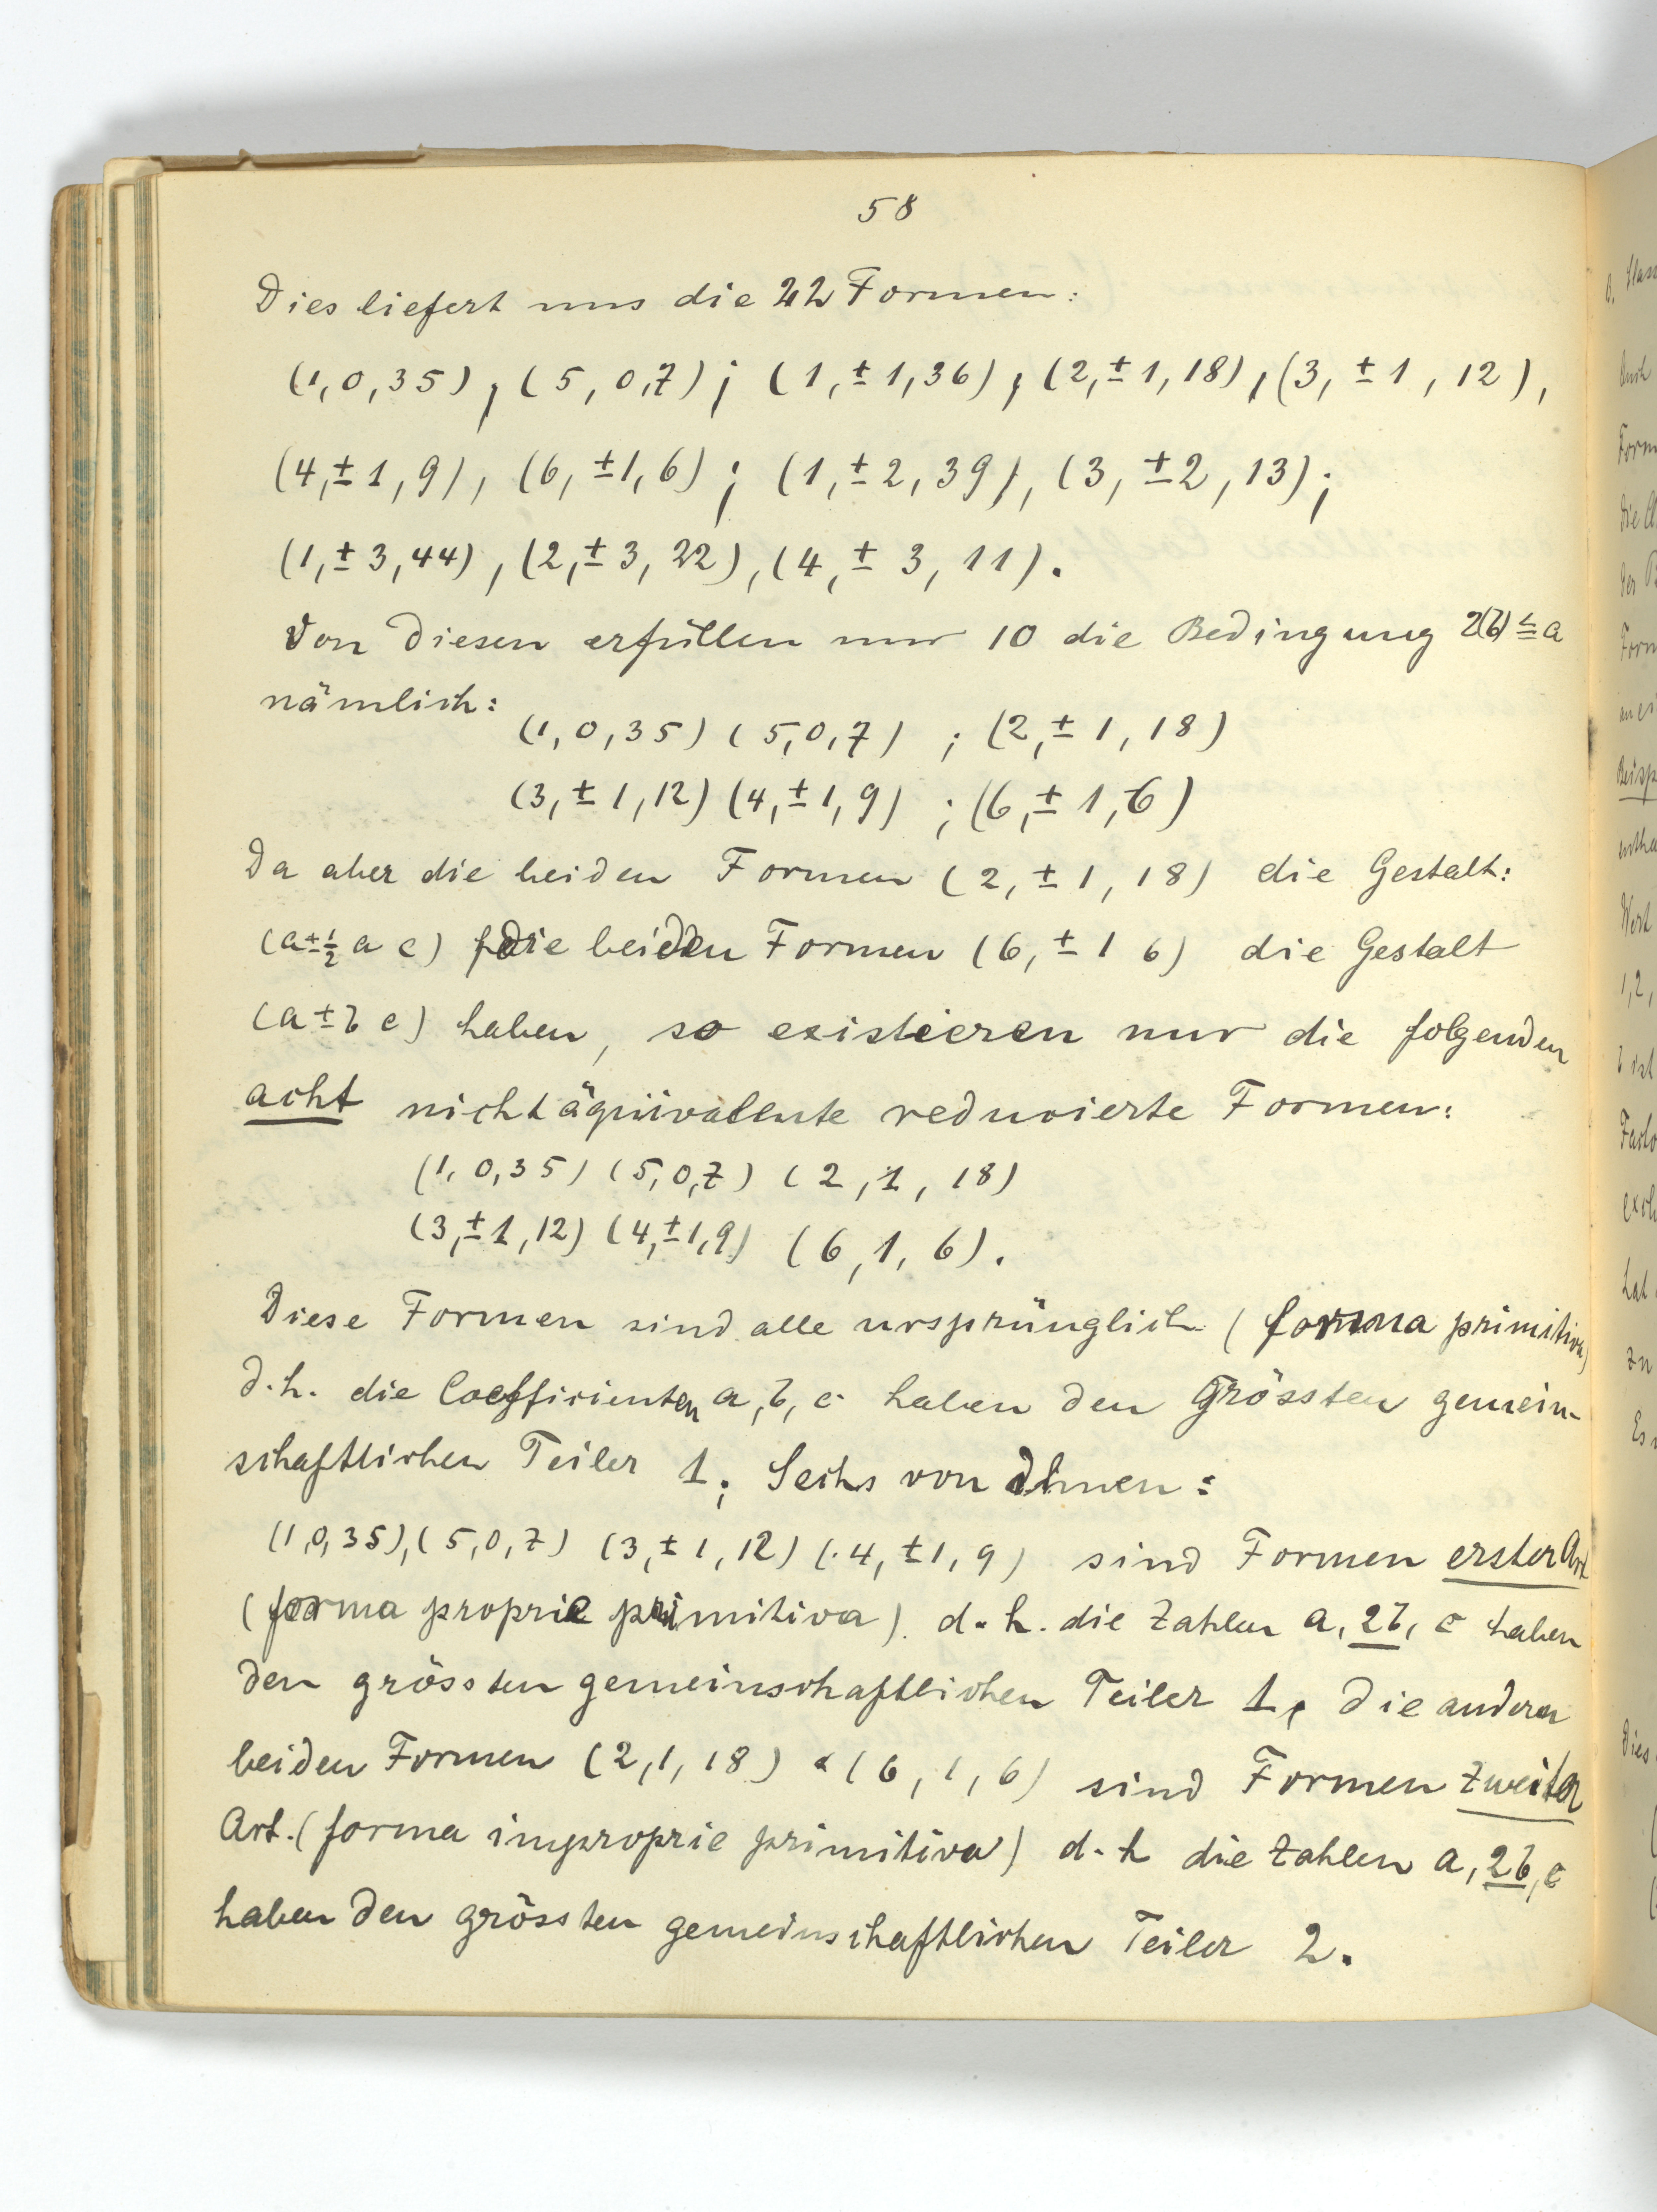 58
Dies liefert uns die 22 Formen:
(1,0,35), (5,0,7); (1,±1,36), (2,±1,18), (3,±1,12),
(4,±1,9), (6,±1,6); (1,±2,39), (3,±2,13);
(1,±3,44), (2,±3,22), (4,±3,11).
Von diesen erfüllen nur 10 die Bedingung 2(b)≤a
nämlich:
(1,0,35) (5,0,7) ; (2,±1,18)
(3,±1,12) (4,±1,9) ; (6,±1,6)
Da aber die beiden Formen (2,±1,18) die Gestalt:
(a ±½ a c) die beiden Formen (6,±1 6) die Gestalt
(a ± b c) haben, so existieren nur die folgenden
acht nichtäquivalente reducierte Formen:
(1,0,35) (5,0,7) (2,1,18)
(3,±1,12) (4,±1,9) (6,1,6).
Diese Formen sind alle ursprünglich (forma primitiva)
d.h. die Coefficienten a,b,c haben den Grössten gemein-
schaftlichen Teiler 1; Sechs von Ihnen:
(1,0,35),(5,0,7) (3,±1,12) (4,±1,9) sind Formen erster Art
(forma proprie primitiva). d.h. die Zahlen a, 2b, c haben
den grössten gemeinschaftlichen Teiler 1, die anderen
beiden Formen (2,1,18) & (6,1,6) sind Formen zweiter
Art. (forma improprie primitiva) d.h die Zahlen a, 2b, c
haben den grössten gemeinschaftlichen Teiler 2.